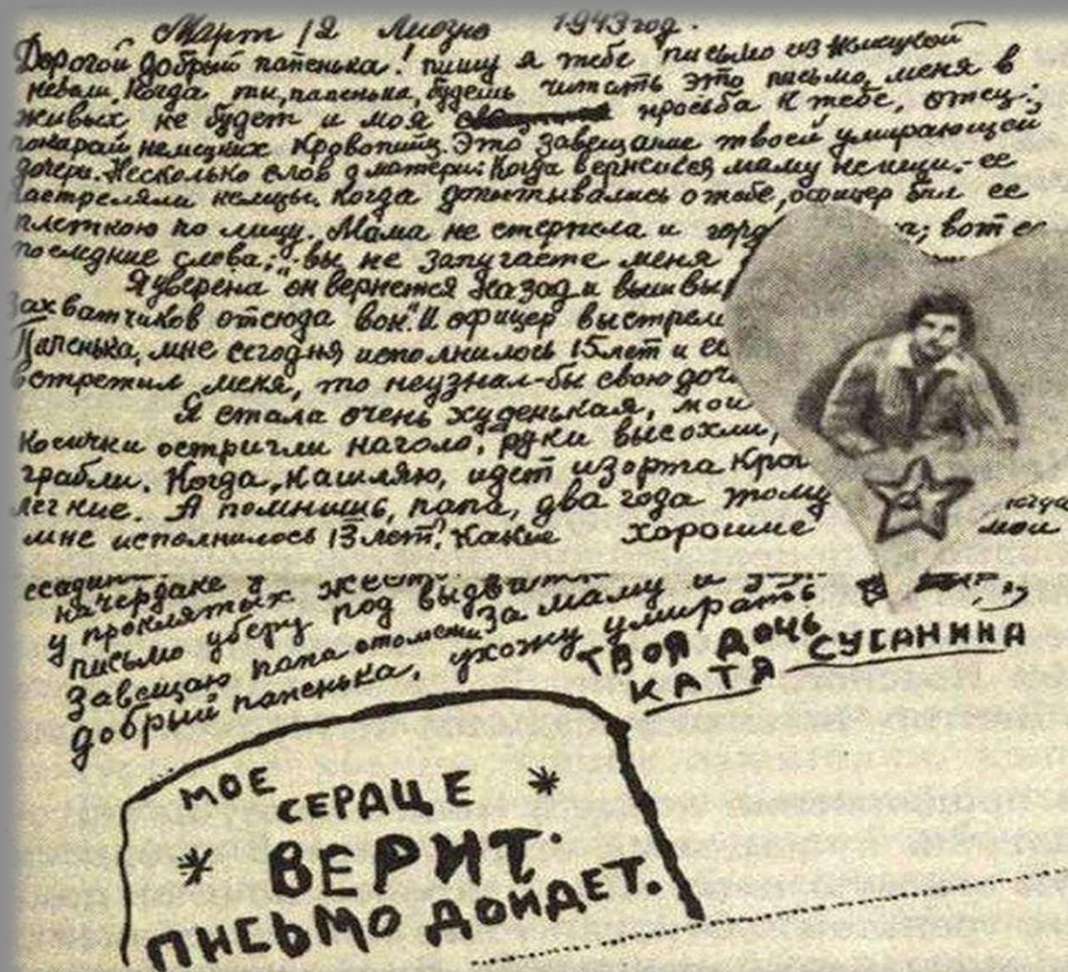 Март 12 Лиозно 1943 год.
Дорогой добрый папенька! пишу я тебе письмо из немецкой
неволи. Когда ты, папенька, будешь читать это письмо, меня в
живых не будет и моя просьба к тебе, отец:
покарай немецких кровопийц. Это завещание твоей умирающей
дочери. Несколько слов о матери: Когда вернешься маму не ищи.- ее
растреляли немцы. Когда допытывались о тебе, офицер бил ее
плеткою по лицу. Мама не стерпела и вот
последние слова: "вы не запугаете меня
Я уверена он вернется назад и
захватчиков отсюда вон". И офицер
Папенька, мне сегодня исполнилось 15 лет и
встретил меня, то неузнал-бы свою
Я стала очень худенькая, мои
косички остригли наголо, руки высохли,
грабли. Когда, кашляю, идет изорта
легкие. А помнишь, папа, два года тому
мне исполнилось 13 лет? Какие хорошие мои
на чердаке
у проклятых
письмо уберу под
Завещаю папа отомсти за маму и
добрый папенька, ухожу умирать
ТВОЯ ДОЧЬ
КАТЯ СУСАНИНА
МОЕ
СЕРДЦЕ *
* ВЕРИТ.
ПИСЬМО ДОЙДЕТ.